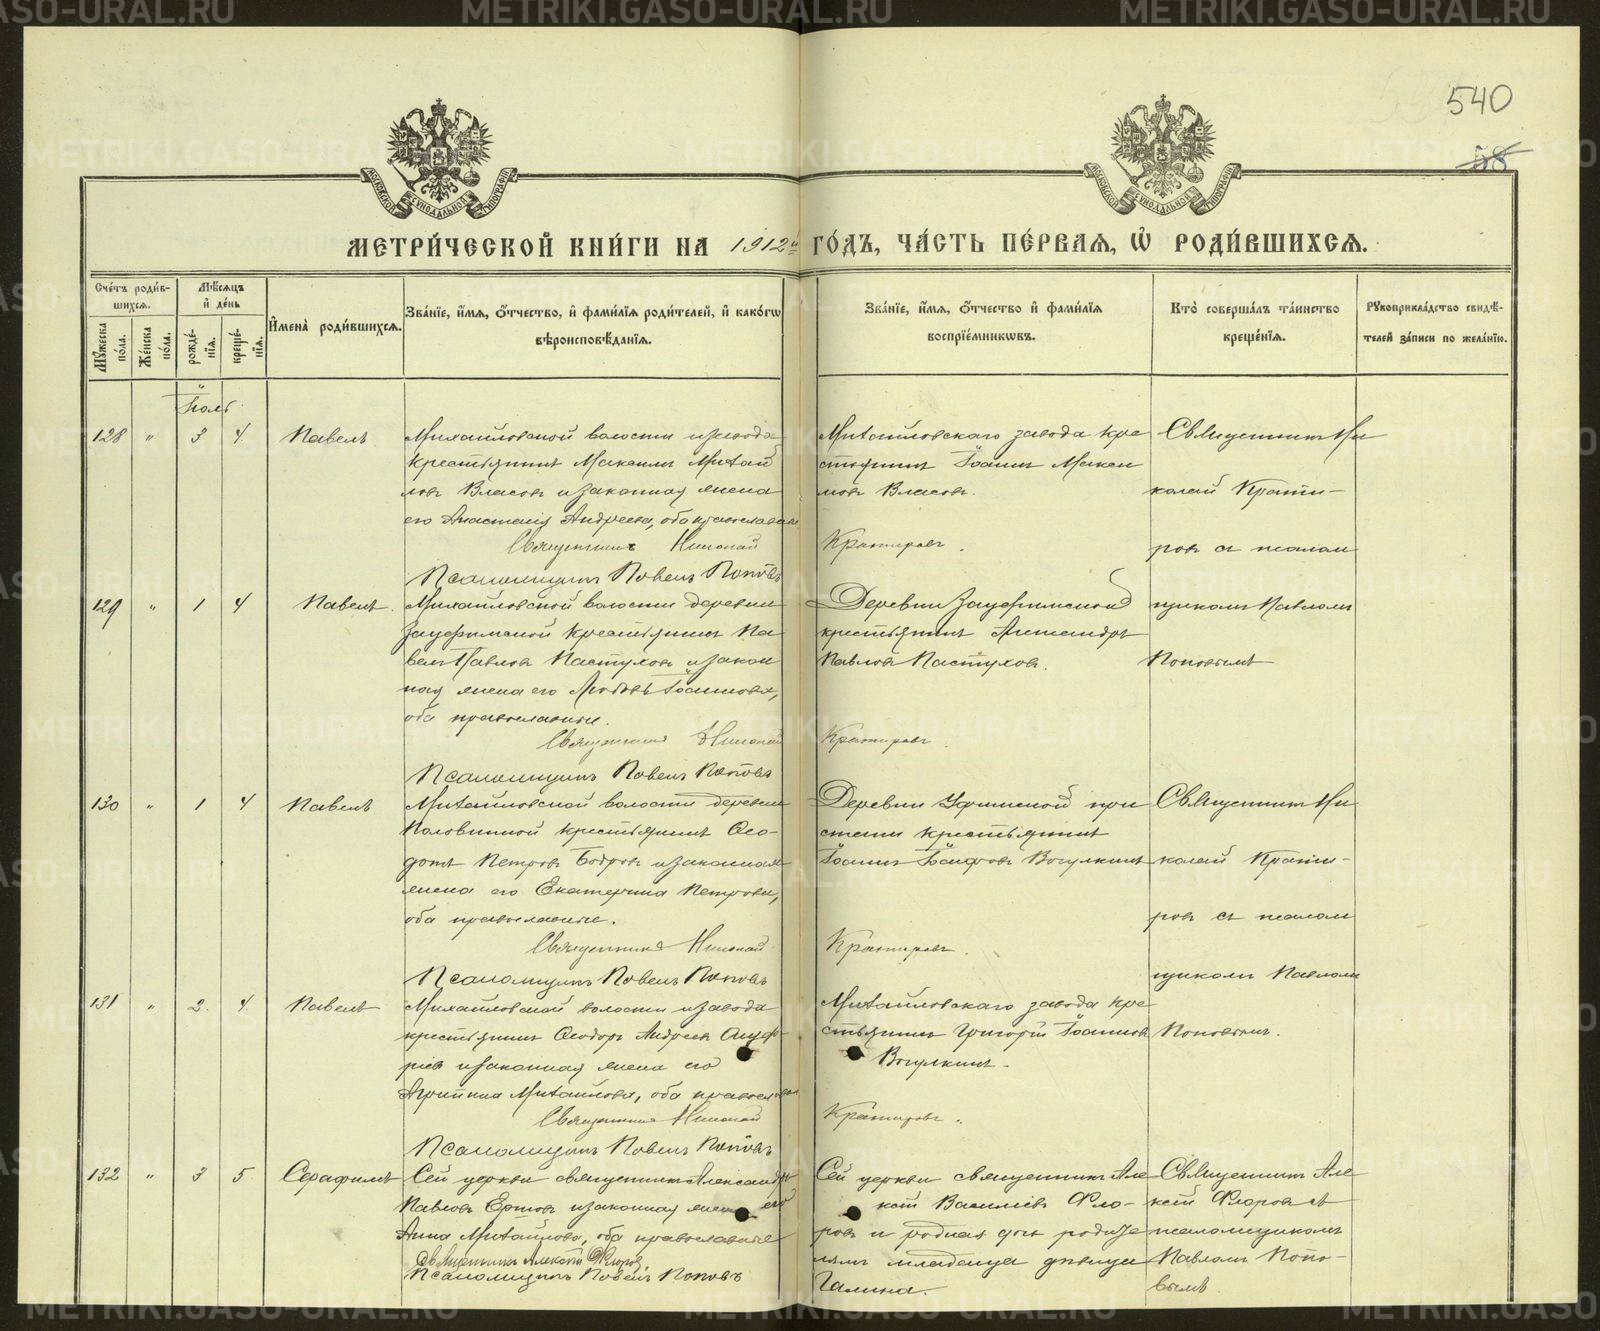 540
58
МЕТРИ́ЧЕСКОЙ КНИ́ГИ НА 1912й ГО́ДЪ, ЧА́СТЬ ПЕ́РВАЯ, Ѿ РОДИ́ВШИХСЯ.
Сче́тъ роди́в-
шихся.
Мꙋ́жеска по́ла.
Же́нска по́ла.
Мѣ́сяцъ
и҆ де́нь
рожде́нїя.
креще́нїя.
И҆мена̀ роди́вшихся.
Зва́нїе, и҆́мя, ѻ҆́тчество, и҆ фами́лїя роди́телей, и҆ како́гѡ
вѣроисповѣ́данїя.
Зва́нїе, и҆́мя, ѻ҆́тчество и҆ фами́лїя
воспрїе́мникѡвъ.
Кто̀ соверша́лъ та́инство
креще́нїя.
Рꙋкоприкла́дство свидѣ́-
телей за́писи по жела́нїю.
Іюль.
128 " 3 4. Павелъ
Михайловской волости и завода
крестьянинъ Максимъ Михай
ловъ Власовъ и законная жена
его Анастасія Андреева, оба православные
Священникъ Николай
Псаломщикъ Павелъ Поповъ
Михайловскаго завода кре
стьянинъ Іоаннъ Макси
мовъ Власовъ.
Кратировъ.
Священникъ Ни
колай Крати-
ровъ съ псалом
129 " 1 4 Павелъ.
Михайловской волости деревни
Зауфимской крестьянинъ Па
велъ Павловъ Пастуховъ и закон
ная жена его Любовь Іоаннова,
оба православные.
Священникъ Николай
Псаломщикъ Павелъ Поповъ
Деревни Зауфимской
крестьянинъ Александръ
Павловъ Пастуховъ.
Кратировъ.
щикомъ Павломъ
Поповымъ
130 " 1 4 Павелъ
Михайловской волости деревни
Половинной крестьянинъ Ѳео-
дотъ Петровъ Бобровъ и законная
жена его Екатерина Петрова,
оба православные.
Священникъ Николай
Псаломщикъ Павелъ Поповъ
Деревни Уфимской при
стани крестьянинъ
Іоаннъ Іосифовъ Вогулкинъ
Кратировъ.
Священникъ Ни
колай Крати-
ровъ съ псалом
щикомъ Павломъ
131 " 2. 4. Павелъ
Михайловской волости и завода
крестьянинъ Ѳеодоръ Андреевъ Ануф-
ріевъ и законная жена его
Агрипина Михайлова, оба православные
Священникъ Николай
Псаломщикъ Павелъ Поповъ
Михайловскаго завода кре
стьянинъ Григорій Іоанновъ
Вогулкинъ.
Кратировъ.
Поповымъ.
132 " 3 5 Серафимъ
Сей церкви священникъ Александръ
Павловъ Ершовъ и законная жена его
Анна Михайлова, оба православные
Священникъ Алексій Флоровъ
Псаломщикъ Павелъ Поповъ
Сей церкви священникъ Але
ксій Василіевъ Фло-
ровъ и родная дочь родите
лямъ младенца дѣвица
Галина.
Священникъ Але
ксій Флоровъ съ
псаломщикомъ
Павломъ Попо-
вымъ.